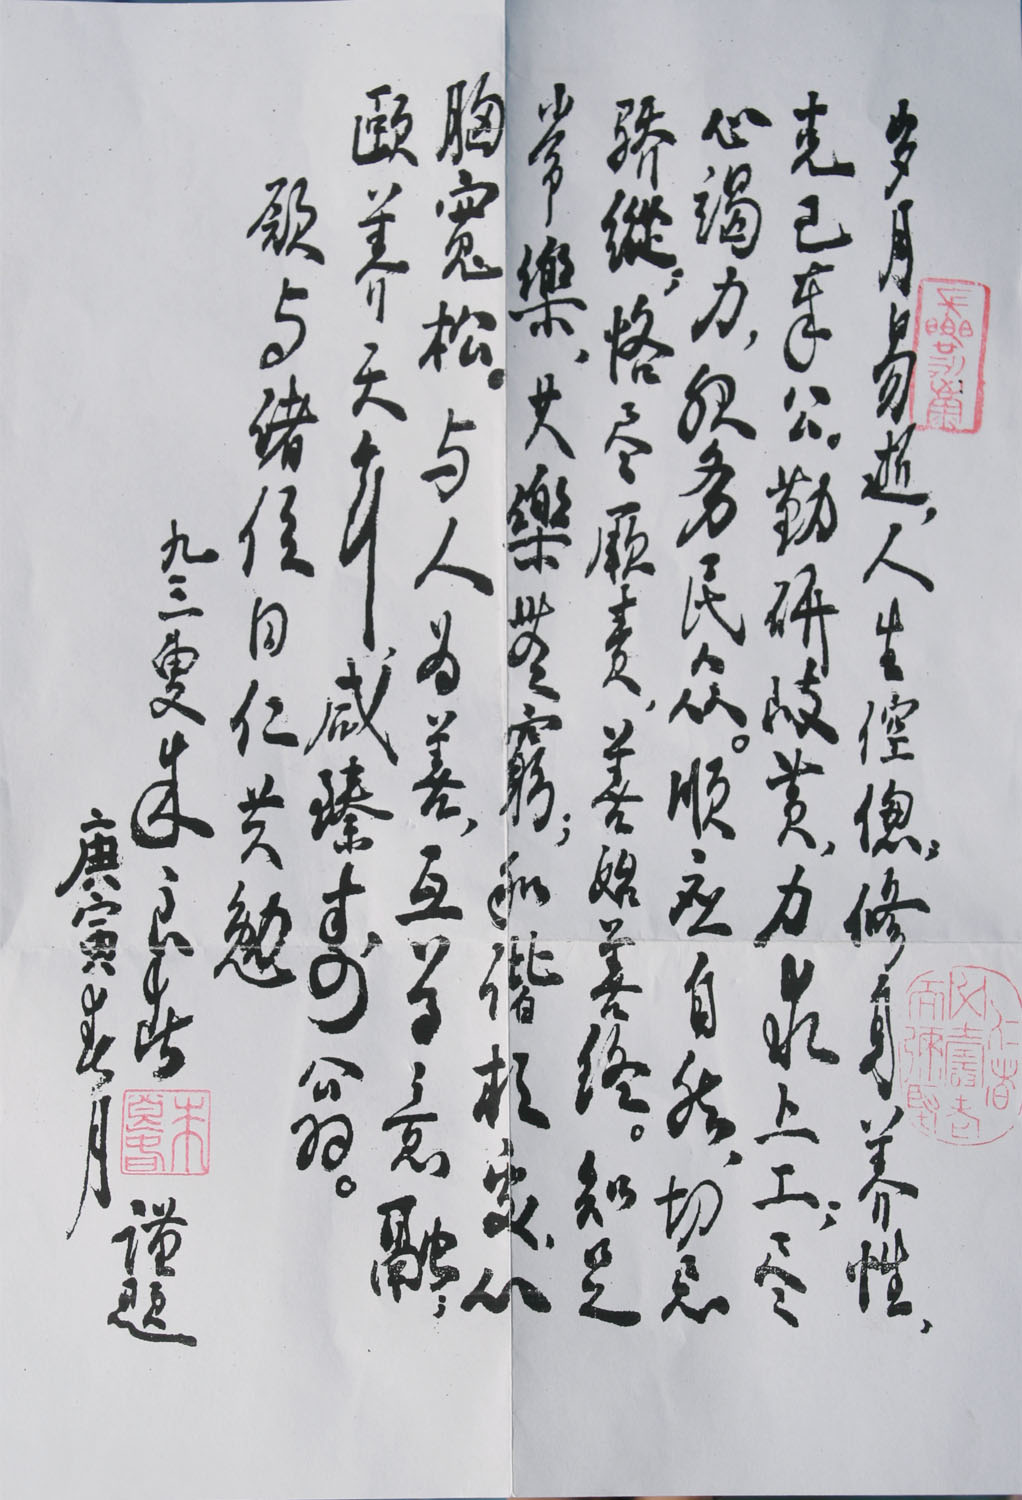 岁月易逝，人生倥偬；修身养性，
克己奉公。勤研岐黄，力求上工；尽
心竭力，服务民众。顺应自然，切忌
骄縱；恪尽厥责，善始善终。知足
常樂，共樂無窮；和谐相处，心
胸寬松。与人为善，互尊意融；
颐养天年，咸臻寿公翁。
愿与诸位同仁共勉
九三叟朱良春
谨题
庚寅春月
朱良春